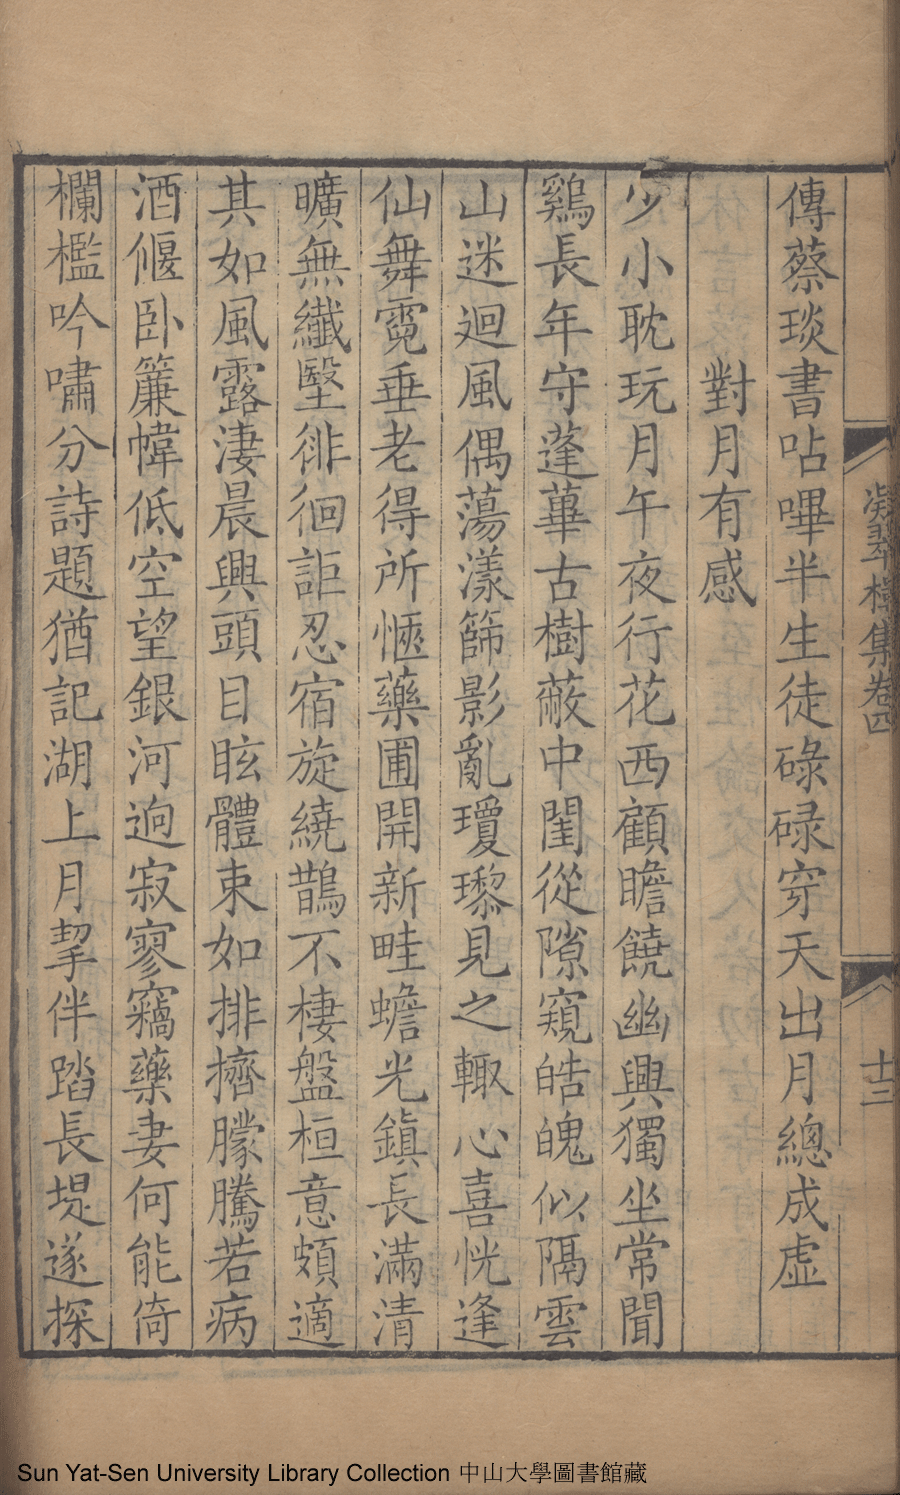 凝翠樓集卷四
十三
傳蔡琰書呫嗶半生徒碌碌穿天出月總成虛
對月有感
少小耽玩月午夜行花西顧瞻饒幽興獨坐常聞
鷄長年守蓬蓽古樹蔽中閨從隙窺皓魄似隔雲
山迷迴風偶蕩漾篩影亂瓊瓈見之輙心喜恍逢
仙舞霓垂老得所愜藥圃開新畦蟾光鎮長滿清
曠無纖翳徘徊詎忍宿旋繞鵲不棲盤桓意頗適
其如風露淒晨興頭目眩體束如排擠朦騰若病
酒偃卧簾幃低空望銀河逈寂寥竊藥妻何能倚
欄檻吟嘯分詩題猶記湖上月挈伴踏長堤遂探
Sun Yat-Sen University Library Collection 中山大學圖書館藏